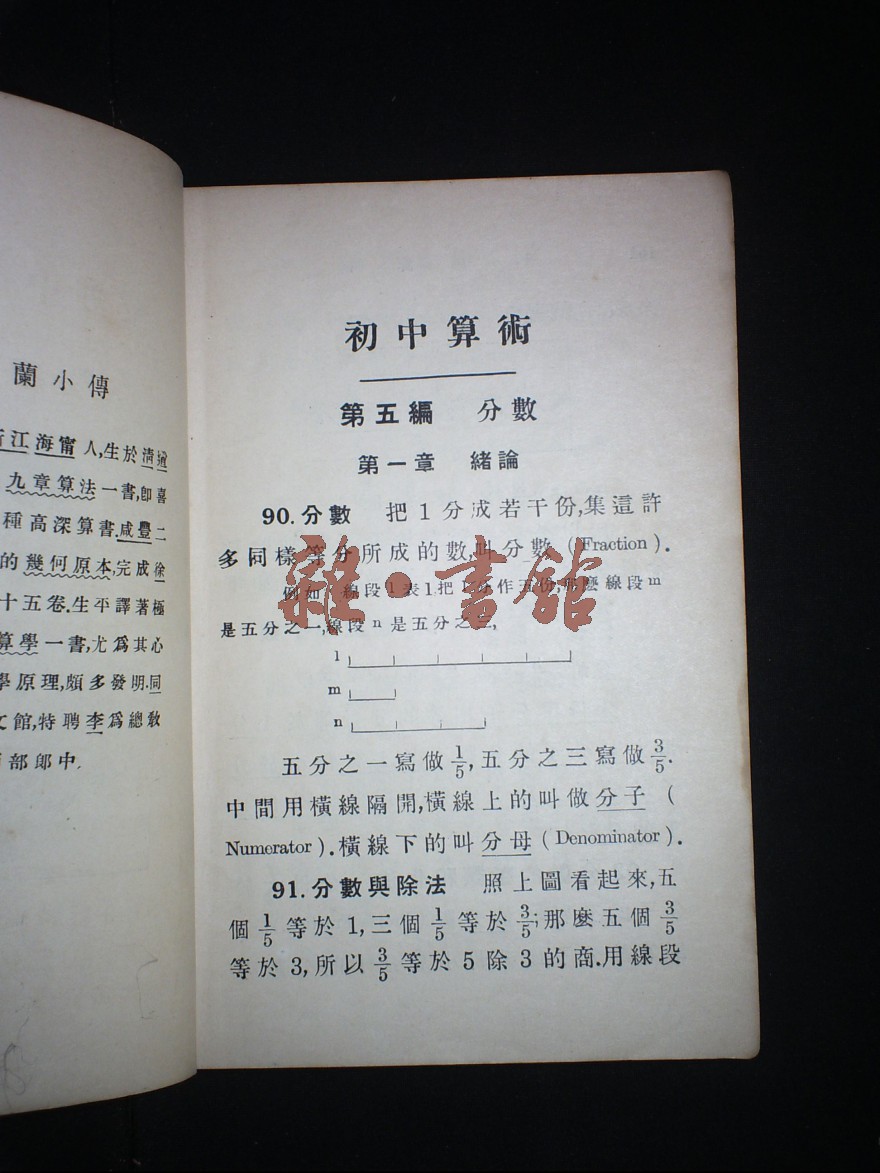 蘭小傳
江海甯人,生於清道
九章算法一書,卽喜
種高深算書.咸豐二
的幾何原本,完成徐
十五卷.生平譯著極
算學一書,尤爲其心
學原理,頗多發明.同
文館,特聘李爲總教
部郎中.
初中算術
第五編 分數
第一章 緒論
90.分數 把1分成若干份,集這許
多同樣等分所成的數,叫分數(Fraction).
例如 線段l表1,把1分作五份,那麼線段m
是五分之一,線段n是五分之三,
l
m
n
五分之一寫做1/5,五分之三寫做3/5.
中間用橫線隔開,橫線上的叫做分子(
Numerator).橫線下的叫分母(Denominator).
91.分數與除法 照上圖看起來,五
個1/5等於1,三個1/5等於3/5;那麼五個3/5
等於3,所以3/5等於5除3的商.用線段
雜·書館